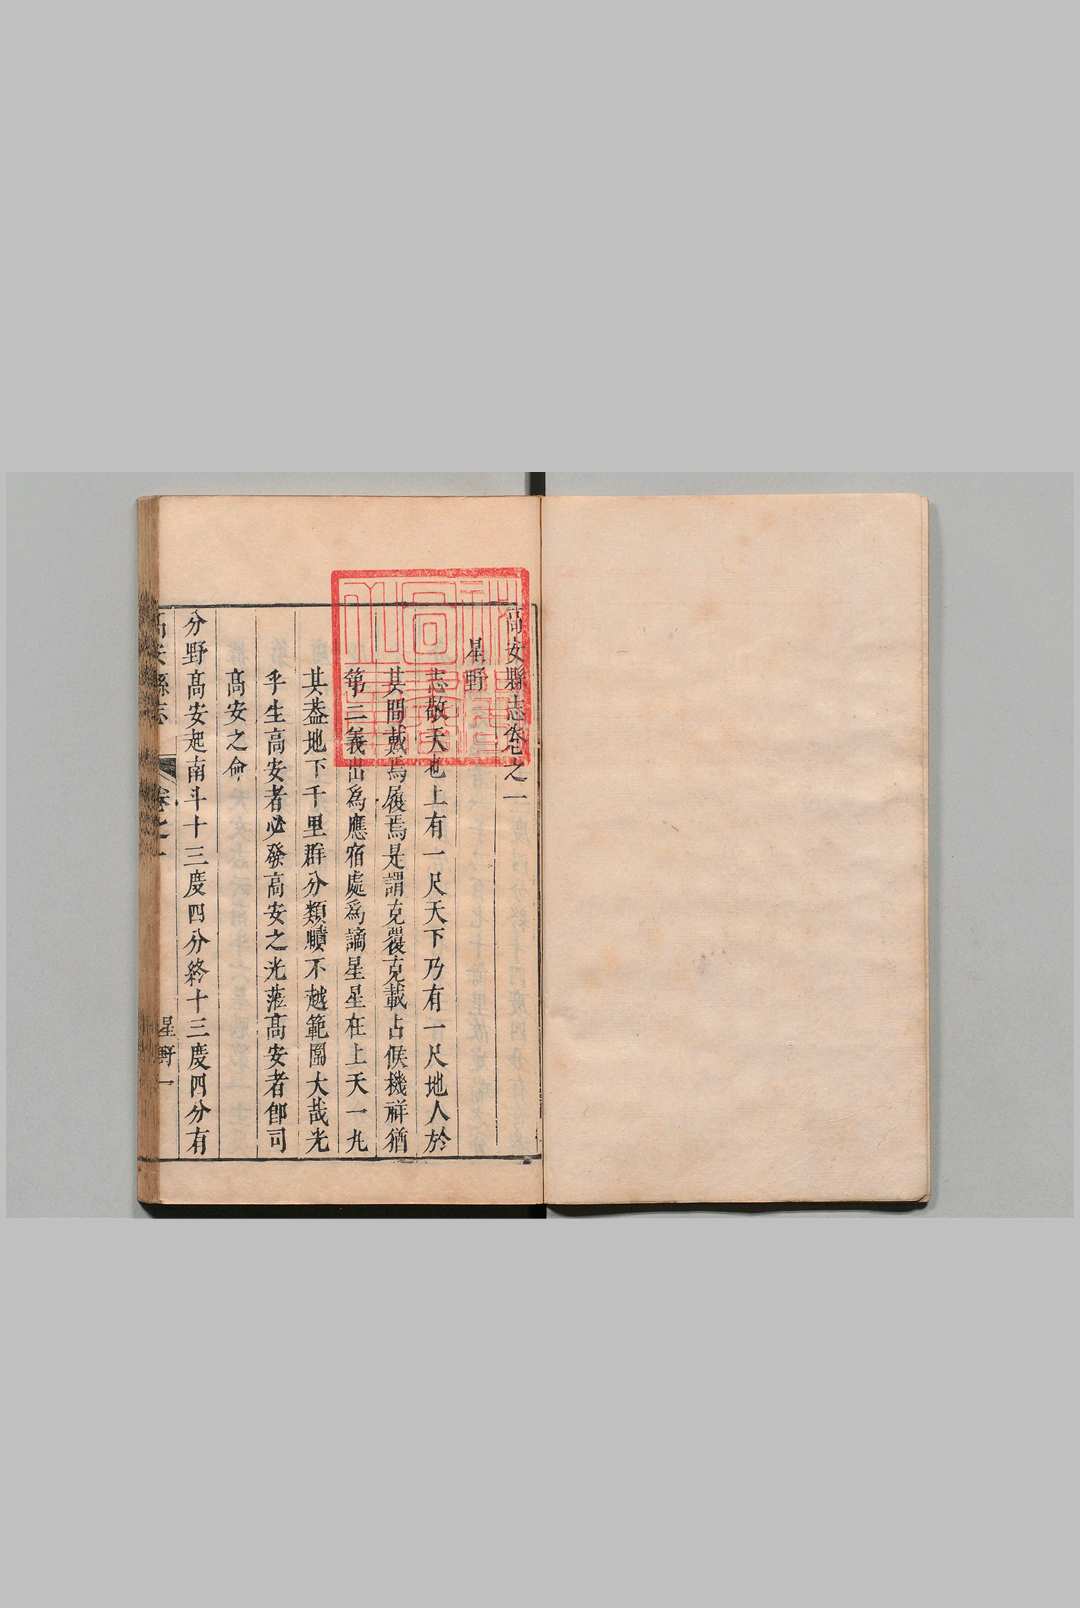 高安縣志卷之一
星野
志敬天也上有一尺天下乃有一尺地人於
其間戴焉履焉是謂克覆克載占候機祥猶
第二義出爲應宿處爲謫星星在上天一九
其葢地下千里群分類賾不越範圍大哉光
乎生高安者必發高安之光蒞高安者卽司
高安之命
分野高安起南斗十三度四分終十三度四分有
高安縣志
卷之一
星野一